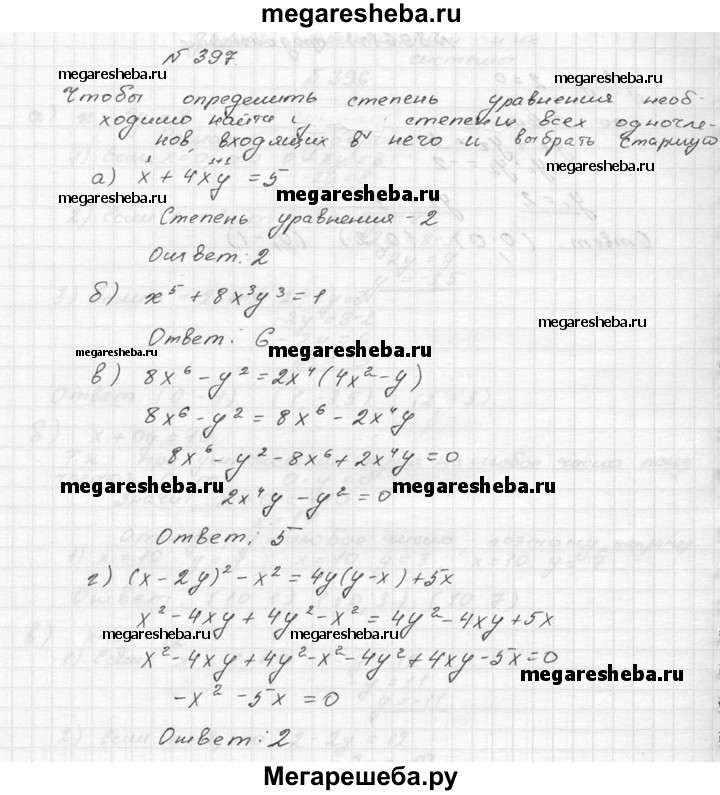 megaresheba.ru
№ 397.
megaresheba.ru megaresheba.ru
Чтобы определить степень уравнения необ-
ходимо найти степени всех одночле-
нов, входящих в него и выбрать старшую
megaresheba.ru
1 1+1
а) x + 4xy = 5
megaresheba.ru
Степень уравнения - 2
Ответ: 2
б) x⁵ + 8x³y³ = 1
megaresheba.ru
Ответ: 6
megaresheba.ru megaresheba.ru
в) 8x⁶ - y² = 2x⁴(4x² - y)
8x⁶ - y² = 8x⁶ - 2x⁴y
8x⁶ - y² - 8x⁶ + 2x⁴y = 0
megaresheba.ru megaresheba.ru
2x⁴y - y² = 0
Ответ: 5
г) (x - 2y)² - x² = 4y(y - x) + 5x
x² - 4xy + 4y² - x² = 4y² - 4xy + 5x
megaresheba.ru megaresheba.ru
x² - 4xy + 4y² - x² - 4y² + 4xy - 5x = 0
megaresheba.ru
-x² - 5x = 0
Ответ: 2
Мегарешеба.ру